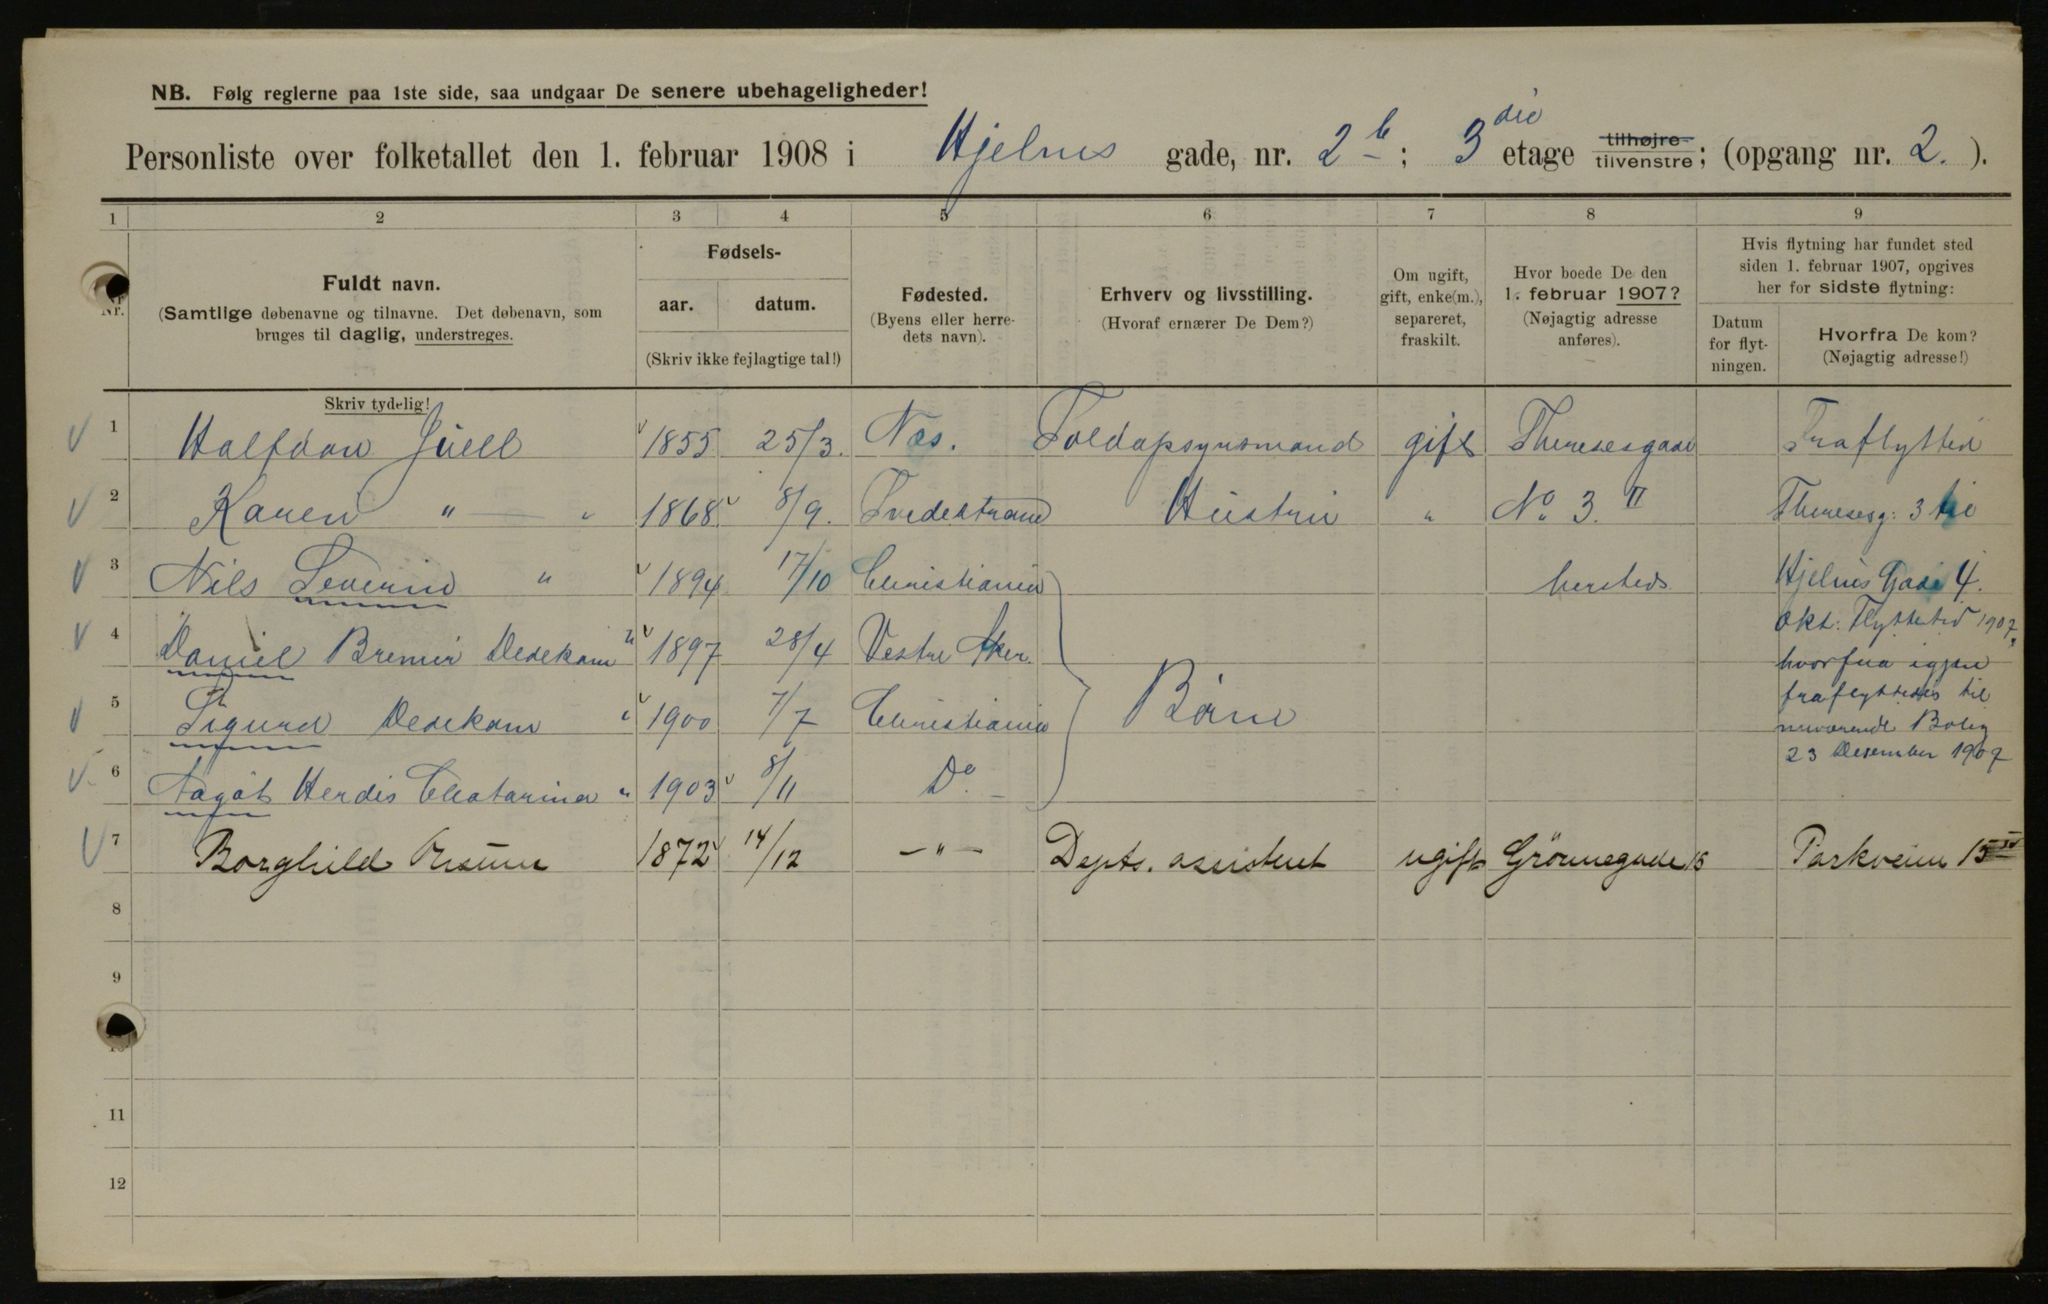 NB. Følg reglerne paa 1ste side, saa undgaar De senere ubehageligheder!
Personliste over folketallet den 1. februar 1908 i Hjelms gade, nr. 2 b; 3 die etage tilhøjre tilvenstre; (opgang nr. 2.).
1 2 3 4 5 6 7 8 9
Nr.
Fuldt navn.
(Samtlige døbenavne og tilnavne. Det døbenavn, som
bruges til daglig, understreges.
Fødsels-
aar. datum.
(Skriv ikke fejlagtige tal!)
Fødested.
(Byens eller herre-
dets navn).
Erhverv og livsstilling.
(Hvoraf ernærer De Dem?)
Om ugift,
gift, enke(m.),
separeret,
fraskilt.
Hvor boede De den
1. februar 1907?
(Nøjagtig adresse
anføres).
Hvis flytning har fundet sted
siden 1. februar 1907, opgives
her for sidste flytning:
Datum
for flyt-
ningen.
Hvorfra De kom?
(Nøjagtig adresse!)
Skriv tydelig!
1 Halfdan Juell 1855 25/3. Næs. Toldopsynsmand gift Theresesgade Fraflytted
2 Karen " " 1868 8/9. Tvedestrand Hustru " No 3. II Theresesg: 3 til
3 Nils Severin " 1894 17/10 Christiania hersteds Hjelms Gade 4.
4 Daniel Bremer Dedekam " 1897 28/4 Vestre Aker. Okt: Flyttetid 1907,
hvorfra igjen
5 Sigurd Dedekam " 1900 7/7 Christiania Børn fraflyttedes til
nuværende Bolig
6 Aagot Herdis Chatarina " 1903 8/11 Do. 23 Desember 1907
7 Borghild 1872 14/12 -"- Depts. assistent ugift Grönnegade 15 Parkveien 15 IV
8
9
10
11
12